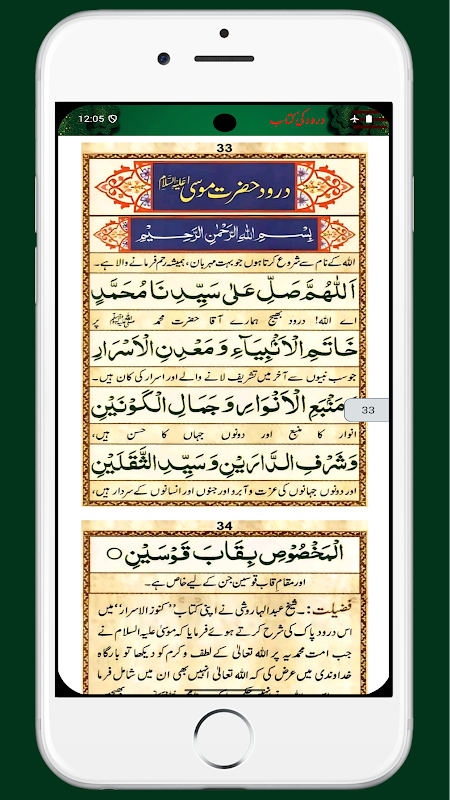 12:05
درود کی کتاب
33
درود حضرت موسیٰ علیہ السلام
بِسْمِ اللهِ الرَّحْمٰنِ الرَّحِيْمِ
اللہ کے نام سے شروع کرتا ہوں جو بہت مہربان، ہمیشہ رحم فرمانے والا ہے۔
اَللّٰهُمَّ صَلِّ عَلٰى سَيِّدِنَا مُحَمَّدٍ
اے اللہ! درود بھیج ہمارے آقا حضرت محمد ﷺ پر
خَاتَمِ الْاَنْۢبِيَآءِ وَ مَعْدِنِ الْاَسْرَارِ
جو سب نبیوں سے آخر میں تشریف لانے والے اور اسرار کی کان ہیں۔
مَنْۢبَعِ الْاَنْوَارِ وَ جَمَالِ الْكَوْنَيْنِ
33
انوار کا منبع اور دونوں جہاں کا حسن ہیں،
وَ شَرَفِ الدَّارَيْنِ وَ سَيِّدِ الثَّقَلَيْنِ
اور دونوں جہانوں کی عزت و آبرو اور جنوں اور انسانوں کے سردار ہیں،
34
الْمَخْصُوْصِ بِقَابَ قَوْسَيْنِ ○
اور مقامِ قاب قوسین جن کے لیے خاص ہے۔
فضیلت:۔ شیخ عبدالہاروشی نے اپنی کتاب ’’کنوز الاسرار‘‘ میں
اس درود پاک کی شرح کرتے ہوئے فرمایا کہ موسیٰ علیہ السلام نے
جب امت محمدیہ پر اللہ تعالیٰ کے لطف و کرم کو دیکھا تو بارگاہ
خداوندی میں عرض کی کہ اللہ تعالیٰ انہیں بھی ان میں شامل فرما